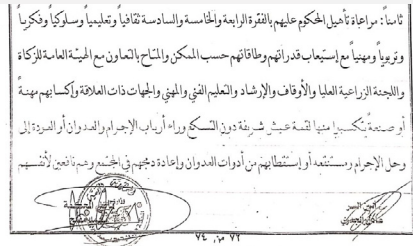 ثامناً: مراعاة تأهيل المحكوم عليهم بالفقرة الرابعة والخامسة والسادسة ثقافياً وتعليمياً وسلوكياً وفكرياً
وتربوياً ومهنياً مع إستيعاب قدراتهم وطاقاتهم حسب الممكن والمتاح بالتعاون مع الهيئة العامة للزكاة
واللجنة الزراعية العليا والأوقاف والإرشاد والتعليم الفني والمهني والجهات ذات العلاقة وإكسابهم مهنة
أو صنعة يتكسبوا منها لقمة عيش شريفة دون التسكع وراء أرباب الإجرام والعدوان أو العودة إلى
وحل الإجرام ومستنقعه أو إستقطابهم من أدوات العدوان وإعادة دمجهم في المجتمع وهم نافعين لأنفسهم
أمين السر
٧٢ من ٧٤